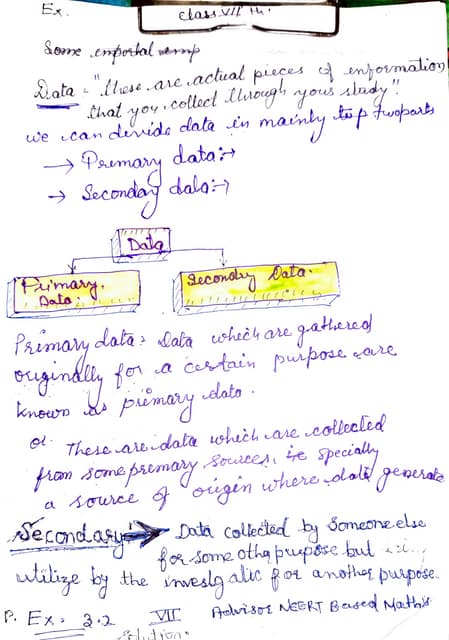 Ex.
Class VII th.
Some emportal emp
Data - "these are actual pieces of enformation
that you collect through your study".
we can devide data en mainly top twoparts
→ Primary data:→
→ Seconday data:→
Data
Primary.
Data.
Secondry Data.
Primary data: Data which are gathered
originally for a certain purpose are
known as primary data.
or. These are data which are collected
from some primary sources, i.e specially
a source of origin where data generate
Secondary: Data collected by Someone else
for some other purpose but
utilize by the investgatic for another purpose.
P. Ex. 3.2 VII Advisor NEERT Based Maths
Solution.